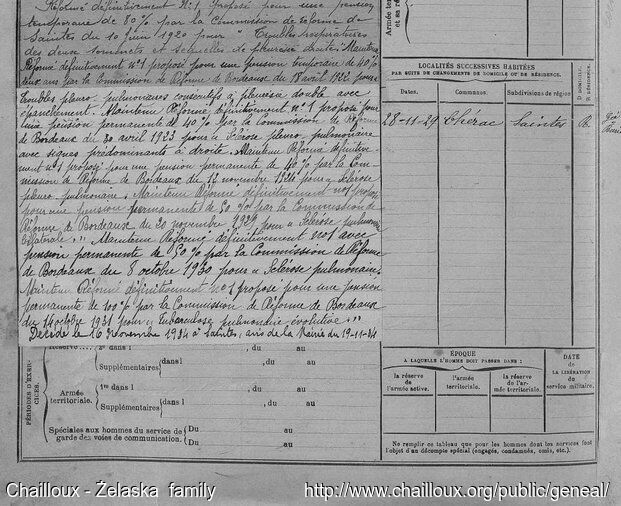 Réformé définitivement N°1 proposé pour une pension
temporaire de 80% par la Commission de réforme de
Saintes du 10 juin 1920 pour "Troubles respiratoires
des deux sommets et séquelles de pleurésie droite. Maintenu
Réformé définitivement n°1 proposé pour une pension temporaire de 40%
deux ans par la Commission de Réforme de Bordeaux du 18 avril 1922 pour
Troubles pleuro-pulmonaires consécutifs à pleurésie double avec
épanchement. Maintenu Réformé définitivement n°1 proposé pour
une pension permanente de 40% par la Commission de Réforme
de Bordeaux du 30 avril 1923 pour Sclérose pleuro pulmonaire
avec signes prédominants à droite. Maintenu Réformé définitive
ment n°1 proposé pour une pension permanente de 40% par la Com
mission de Réforme de Bordeaux du 12 novembre 1924 pour "Sclérose
pleuro pulmonaire. Maintenu Réformé définitivement n°1 proposé
pour une pension permanente de 50% par la Commission de
Réforme de Bordeaux du 20 novembre 1929 pour "Sclérose pulmonaire
bilatérale". Maintenu Réformé définitivement n°1 avec
pension permanente de 50% par la Commission de Réforme
de Bordeaux du 8 octobre 1930 pour "Sclérose pulmonaire.
Maintenu Réformé définitivement n°1 proposé pour une pension
permanente de 100% par la Commission de Réforme de Bordeaux
du 14 octobre 1931 pour "Tuberculose pulmonaire évolutive"
Décédé le 16 Novembre 1934 à Saintes, avis de la Mairie du 19-11-34
Armée terri
et sa ré
LOCALITÉS SUCCESSIVES HABITÉES
PAR SUITE DE CHANGEMENTS DE DOMICILE OU DE RÉSIDENCE.
D. DOMICILE.
R. RÉSIDENCE.
Dates. Communes. Subdivisions de région
28-11-29 Chérac Saintes R.
Réserve
2e dans l , du au
Supplémentaires dans l , du au
, du au
PÉRIODES D'EXERCICES.
Armée territoriale.
1re dans l , du au
Supplémentaires dans l , du au
, du au
Spéciales aux hommes du service de
garde des voies de communication.
Du au
Du au
ÉPOQUE
A LAQUELLE L'HOMME DOIT PASSER DANS :
la réserve de l'armée active.
l'armée territoriale.
la réserve de l'armée territoriale.
DATE
DE LA LIBÉRATION
du
service militaire.
Ne remplir ce tableau que pour les hommes dont les services font
l'objet d'un décompte spécial (engagés, condamnés, omis, etc.).
Chailloux - Żelaska family http://www.chailloux.org/public/geneal/